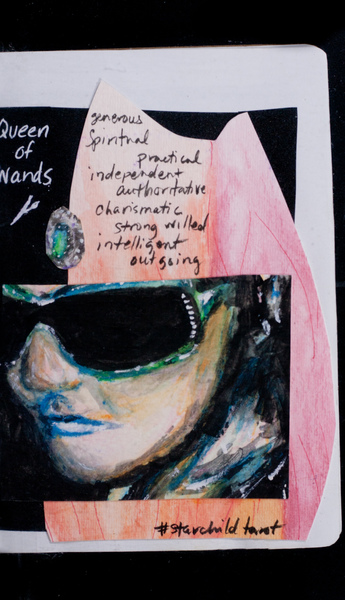 Queen
of
Wands
generous
Spiritual
practical
independent
authoritative
charismatic
strong willed
intelligent
outgoing
#starchild tarot